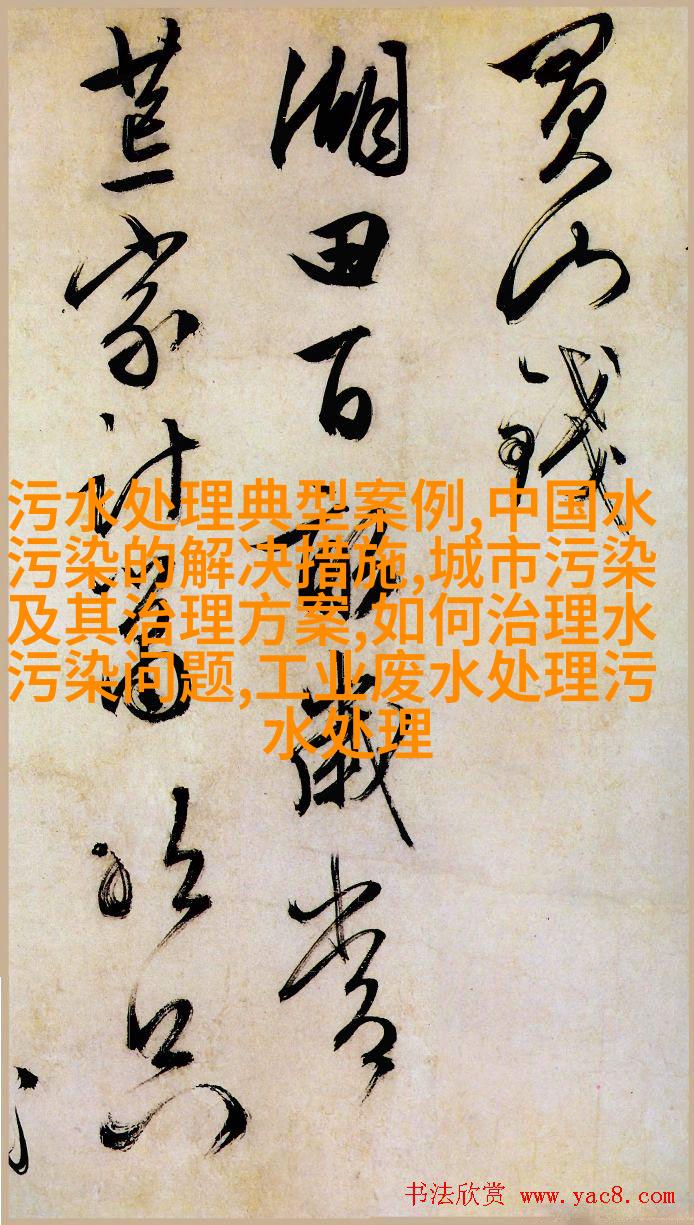 買山錢
湖田百畝歲常
荒家計 只
污水处理典型案例,中国水
污染的解决措施,城市污染
及其治理方案,如何治理水
污染问题,工业废水处理污
水处理
书法欣赏 www.yac8.com